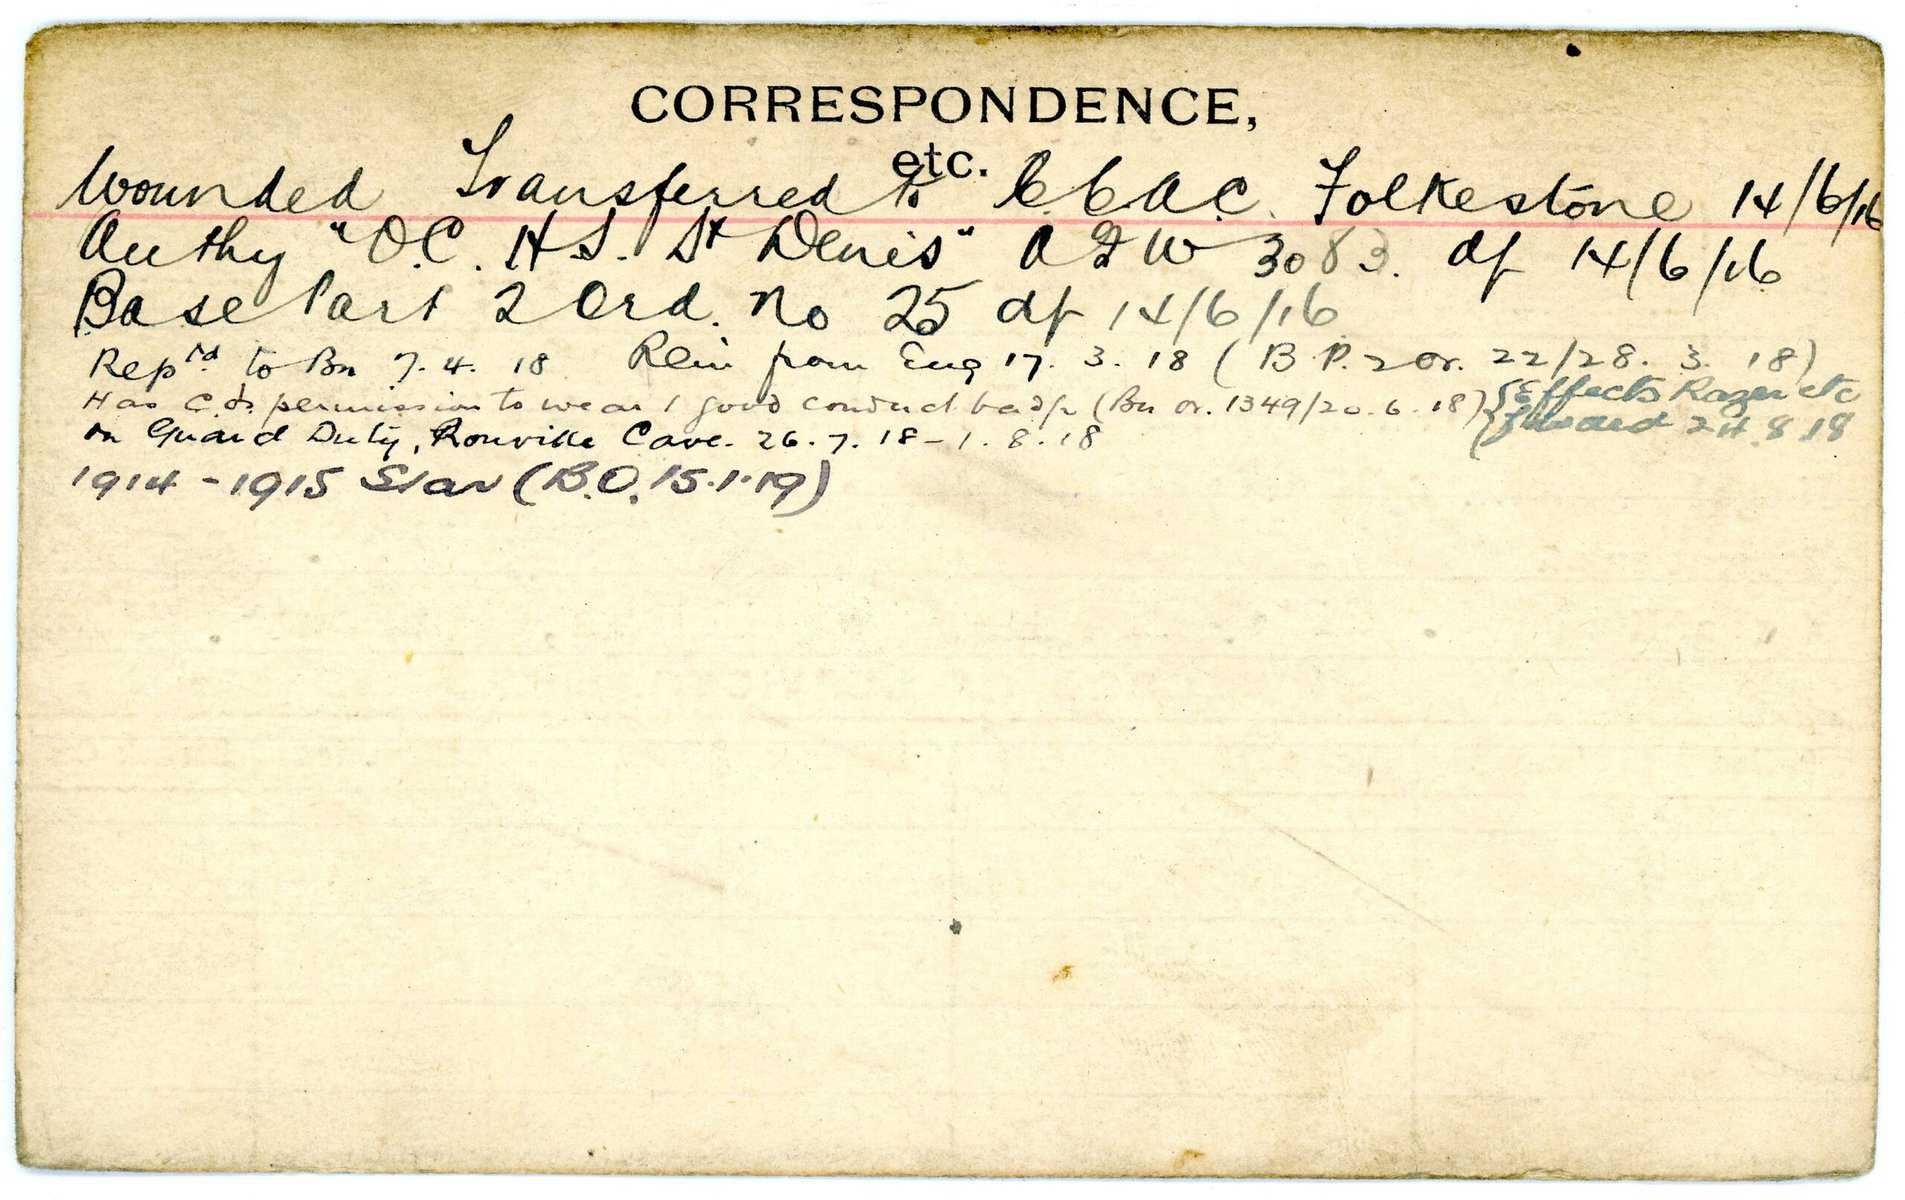 CORRESPONDENCE,
etc.
Wounded Transferred to C.C.A.C. Folkestone 14/6/16
Authy "O.C. H.S. St Denis" A & W 3083. df 14/6/16
Base Part 2 Ord. No 25 df 14/6/16
Rep'td to Bn 7.4.18 Rein from Eng 17.3.18 (B.P. 2 Or. 22/28.3.18)
Has C.O's permission to wear 1 good conduct badge (Bn or. 1349/20.6.18) {Effects Razer etc
On Guard Duty, Ronville Cave. 26.7.18 - 1.8.18 24.8.18
1914-1915 Star (B.O. 15.1.19)